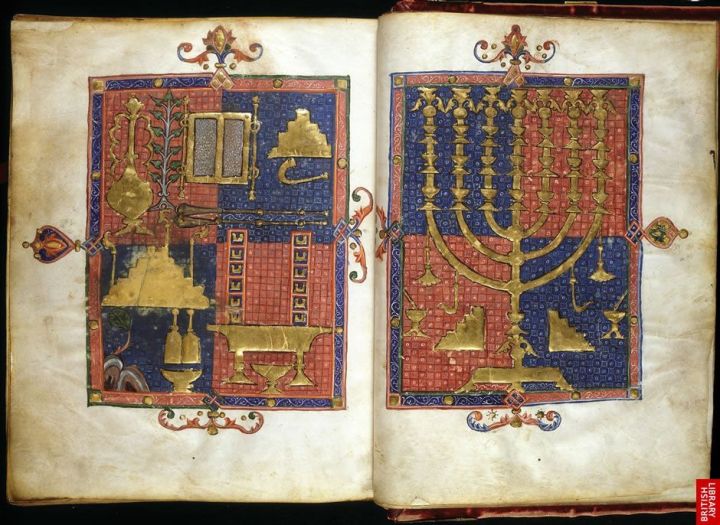 LIBRARY
BRITISH